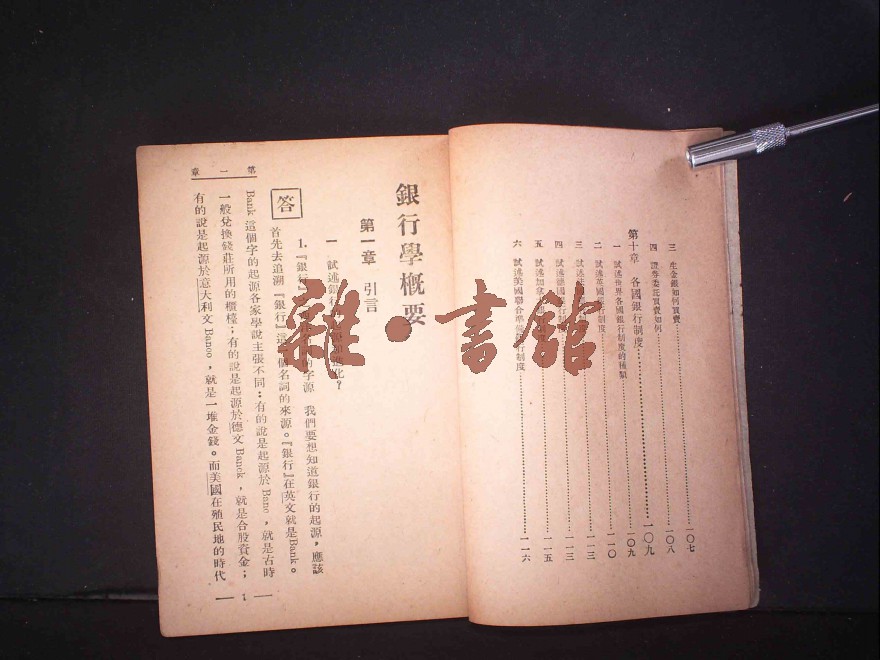 三 生金銀如何買賣 一〇七
四 證券委託買賣如何 一〇八
第十章 各國銀行制度 一〇九
一 試述世界各國銀行制度的種類 一〇九
二 試述英國銀行制度 一一〇
三 試述 一一三
四 試述德國銀行制 一一三
五 試述加拿 一一五
六 試述美國聯合準備銀行制度 一一六
銀行學概要
第一章 引言
一 試述銀行 化？
答
1.『銀行』 的字源 我們要想知道銀行的起源，應該
首先去追溯『銀行』這個名詞的來源。『銀行』在英文就是Bank。
Bank 這個字的起源各家學說主張不同：有的說是起源於 Banc，就是古時
一般兌換錢莊所用的櫃檯；有的說是起源於德文 Banck，就是合股資金；
有的說是起源於意大利文 Banco，就是一堆金錢。而美國在殖民地的時代
第一章
1
雜·書館